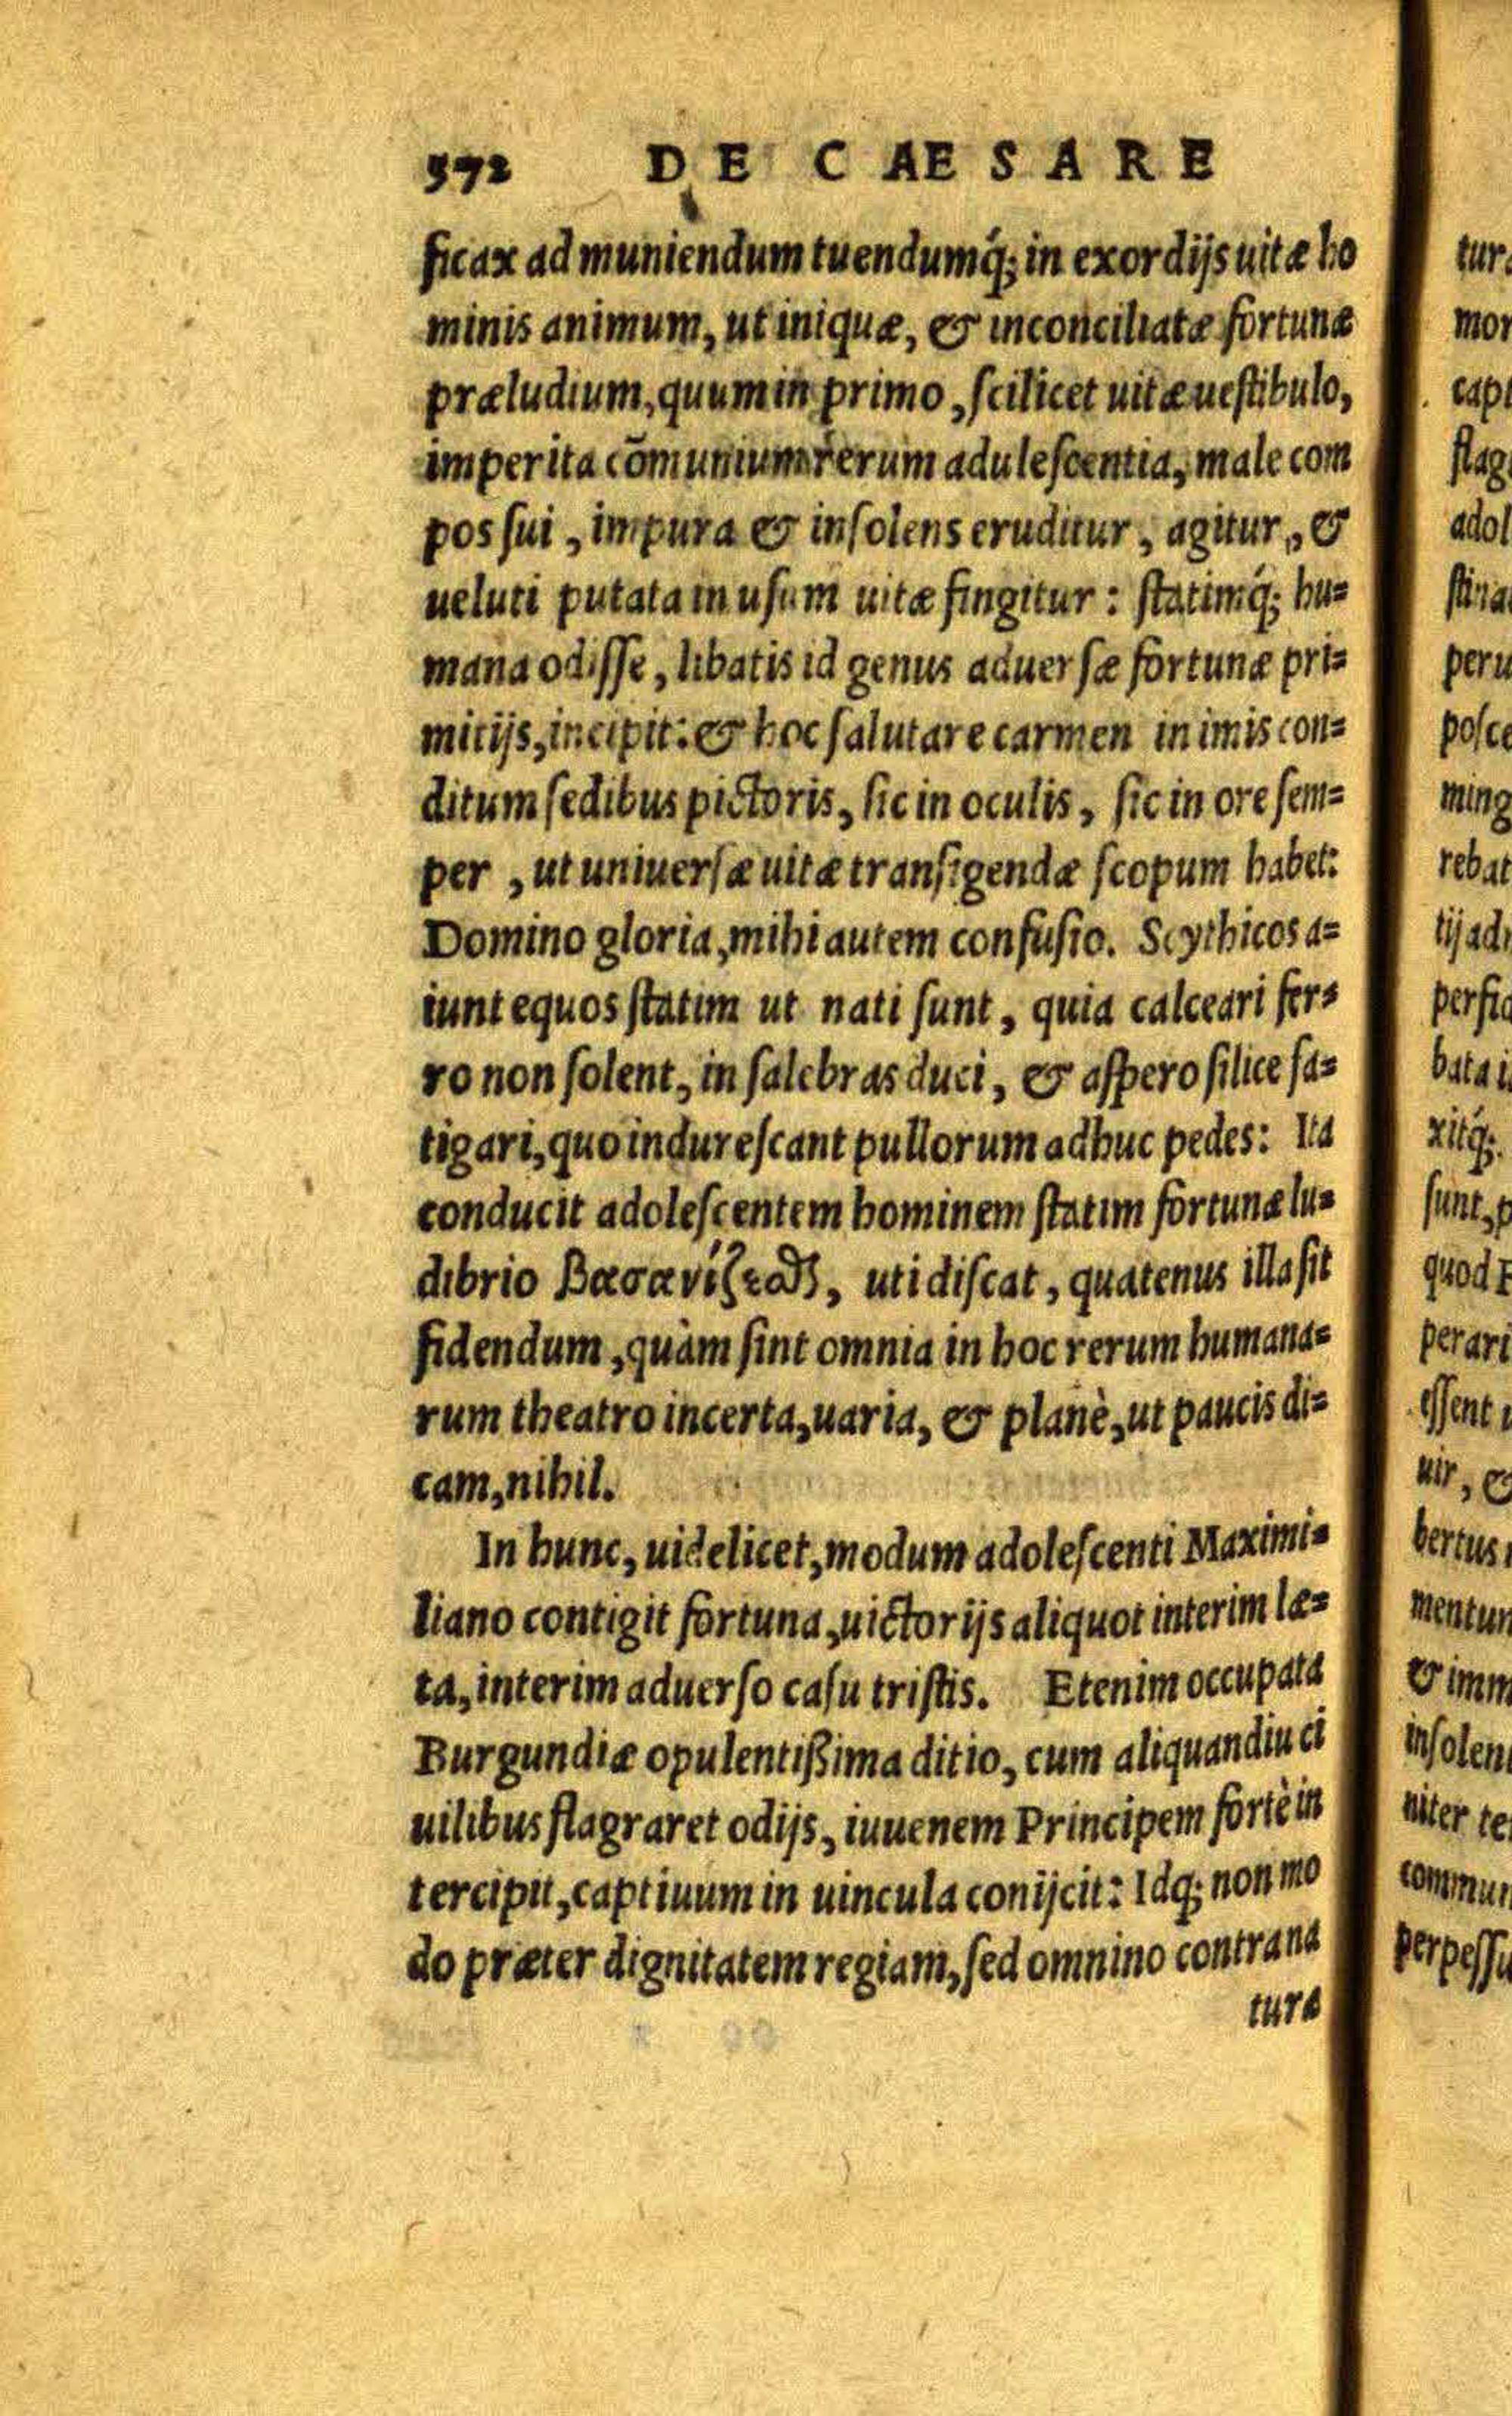 572 DE CAESARE
ficax ad muniendum tuendumq́; in exordijs uitæ ho
minis animum, ut iniquæ, & inconciliatæ fortunæ
præludium, quum in primo, scilicet uitæ uestibulo,
imperita cōmunium rerum adulescentia, male com
pos sui, impura & insolens eruditur, agitur, &
ueluti putata in usum uitæ fingitur: statimq́; hu=
mana odisse, libatis id genus aduersæ fortunæ pri=
mitijs, incipit: & hoc salutare carmen in imis con=
ditum sedibus pictoris, sic in oculis, sic in ore sem=
per, ut uniuersæ uitæ transigendæ scopum habet:
Domino gloria, mihi autem confusio. Scythicos a=
iunt equos statim ut nati sunt, quia calceari fer=
ro non solent, in salebras duci, & aspero silice fa=
tigari, quo indurescant pullorum adhuc pedes: Ita
conducit adolescentem hominem statim fortunæ lu=
dibrio βασανίζεσθαι, uti discat, quatenus illa sit
fidendum, quàm sint omnia in hoc rerum humana=
rum theatro incerta, uaria, & planè, ut paucis di=
cam, nihil.
In hunc, uidelicet, modum adolescenti Maximi=
liano contigit fortuna, uictorijs aliquot interim læ=
ta, interim aduerso casu tristis. Etenim occupata
Burgundiæ opulentißima ditio, cum aliquandiu ci
uilibus flagraret odijs, iuuenem Principem fortè in
tercipit, captiuum in uincula conijcit: Idq; non mo
do præter dignitatem regiam, sed omnino contra na
tura